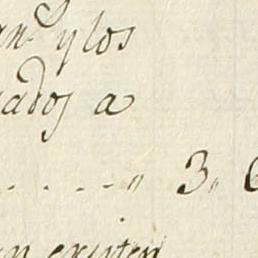 y los
ados a
3,, 6
en existen